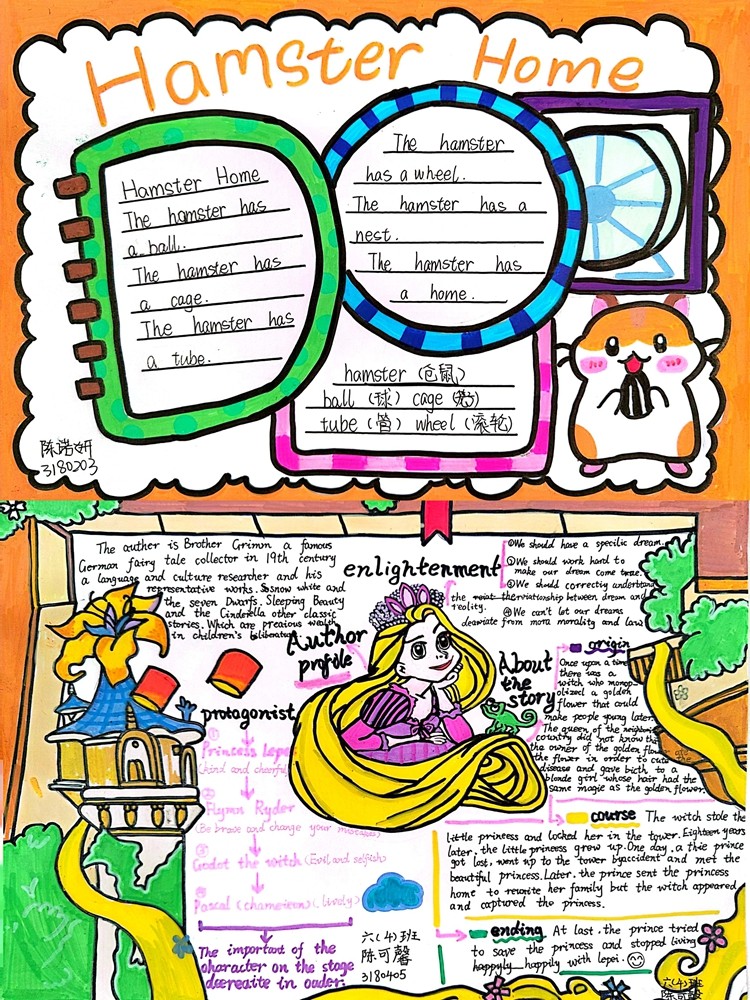 Hamster Home
Hamster Home
The hamster has
a ball.
The hamster has
a cage.
The hamster has
a tube.
The hamster
has a wheel.
The hamster has a
nest.
The hamster has
a home.
hamster (仓鼠)
ball (球) cage
tube (管) wheel (滚轮)
陈诺妍
3180203
The auther is Brother Grimm a famous
German fairy tale collector in 19th century
a language and culture researcher and his
representative works. Sosnow white and
the seven Dwarfs. Sleeping Beauty
and the Cinderella other classic
stories. Which are preaious wealth
in children's
enlightenment
①We should have a specific dream.
②We should work hard to
make our dream come true.
③We should correctly understand
the relationship between dream and
reality.
④We can't let our dreams
deawiate from mora morality and law
Author
profile
About
the
story
protagonist
Princess Lepei
(kind and cheerful)
Flynn Ryder
(Be brave and change your mistakes)
Godot the witch (Evil and selfish)
Pascal (chameleon) (lively)
The important of the
character on the stage
decreaite in ouder.
六(4)班
陈可馨
3180405
origin
Once upon a time
there was a
witch who monop-
olized a golden
flower that could
make people young later.
The queen of the neighboring
country did not know
the owner of the golden flower ate
the flower in order to cute the
disease and gave birth to a
blonde girl whose hair had the
same magic as the golden flower.
course The witch stole the
little princess and locked her in the tower. Eighteen years
later, the little princess grew up. One day, a thie prince
got lost, went up to the tower byaccident and met the
beautiful princess. Later, the prince sent the princess
home to reunite her family but the witch appeared
and captured the princess.
ending At last, the prince tried
to save the princess and stopped living
happyly happily with lepei.
六(4)班
陈可馨